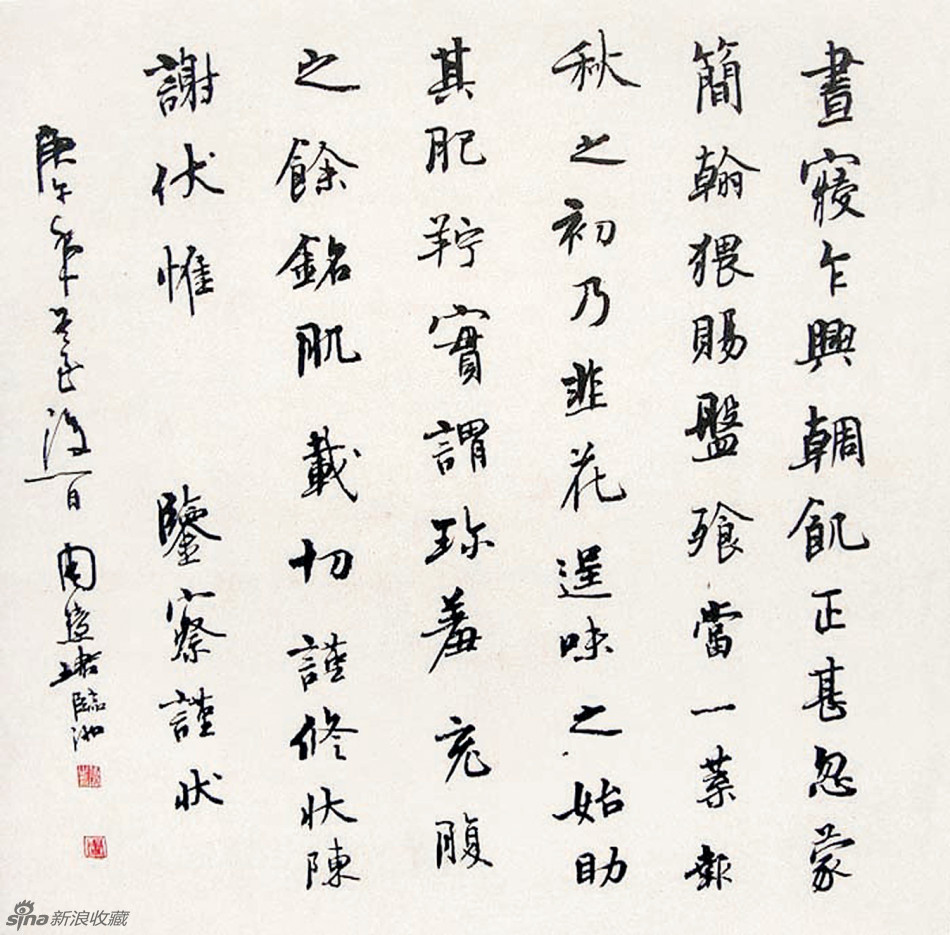 晝寢乍興輖飢正甚忽蒙
簡翰猥賜盤飱當一葉報
秋之初乃韭花逞味之始助
其肥羜實謂珍羞充腹
之餘銘肌載切謹修狀陳
謝伏惟 鑒察謹狀
庚午年冬至後一日 周慧珺臨池
sina新浪收藏